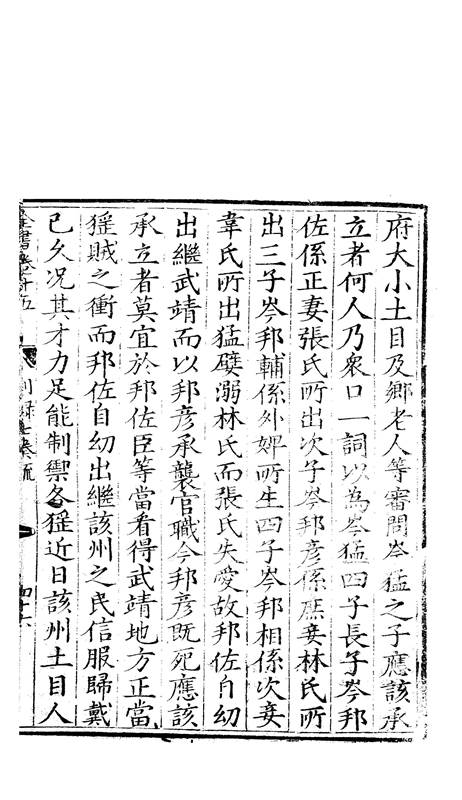 府大小土目及鄉老人等審問岑猛之子應該承
立者何人乃衆口一詞以為岑猛四子長子岑邦
佐係正妻張氏所出次子岑邦彦係庶妾林氏所
出三子岑邦輔係外婢所生四子岑邦相係次妾
韋氏所出猛嬖溺林氏而張氏失愛故邦佐自幼
出繼武靖而以邦彦承襲官職今邦彦既死應該
承立者莫宜於邦佐臣等當看得武靖地方正當
猺賊之衝而邦佐自幼出繼該州之民信服歸戴
已久况其才力足能制禦各猺近日該州土目人
全書卷十五 別録七 奏疏 四十六